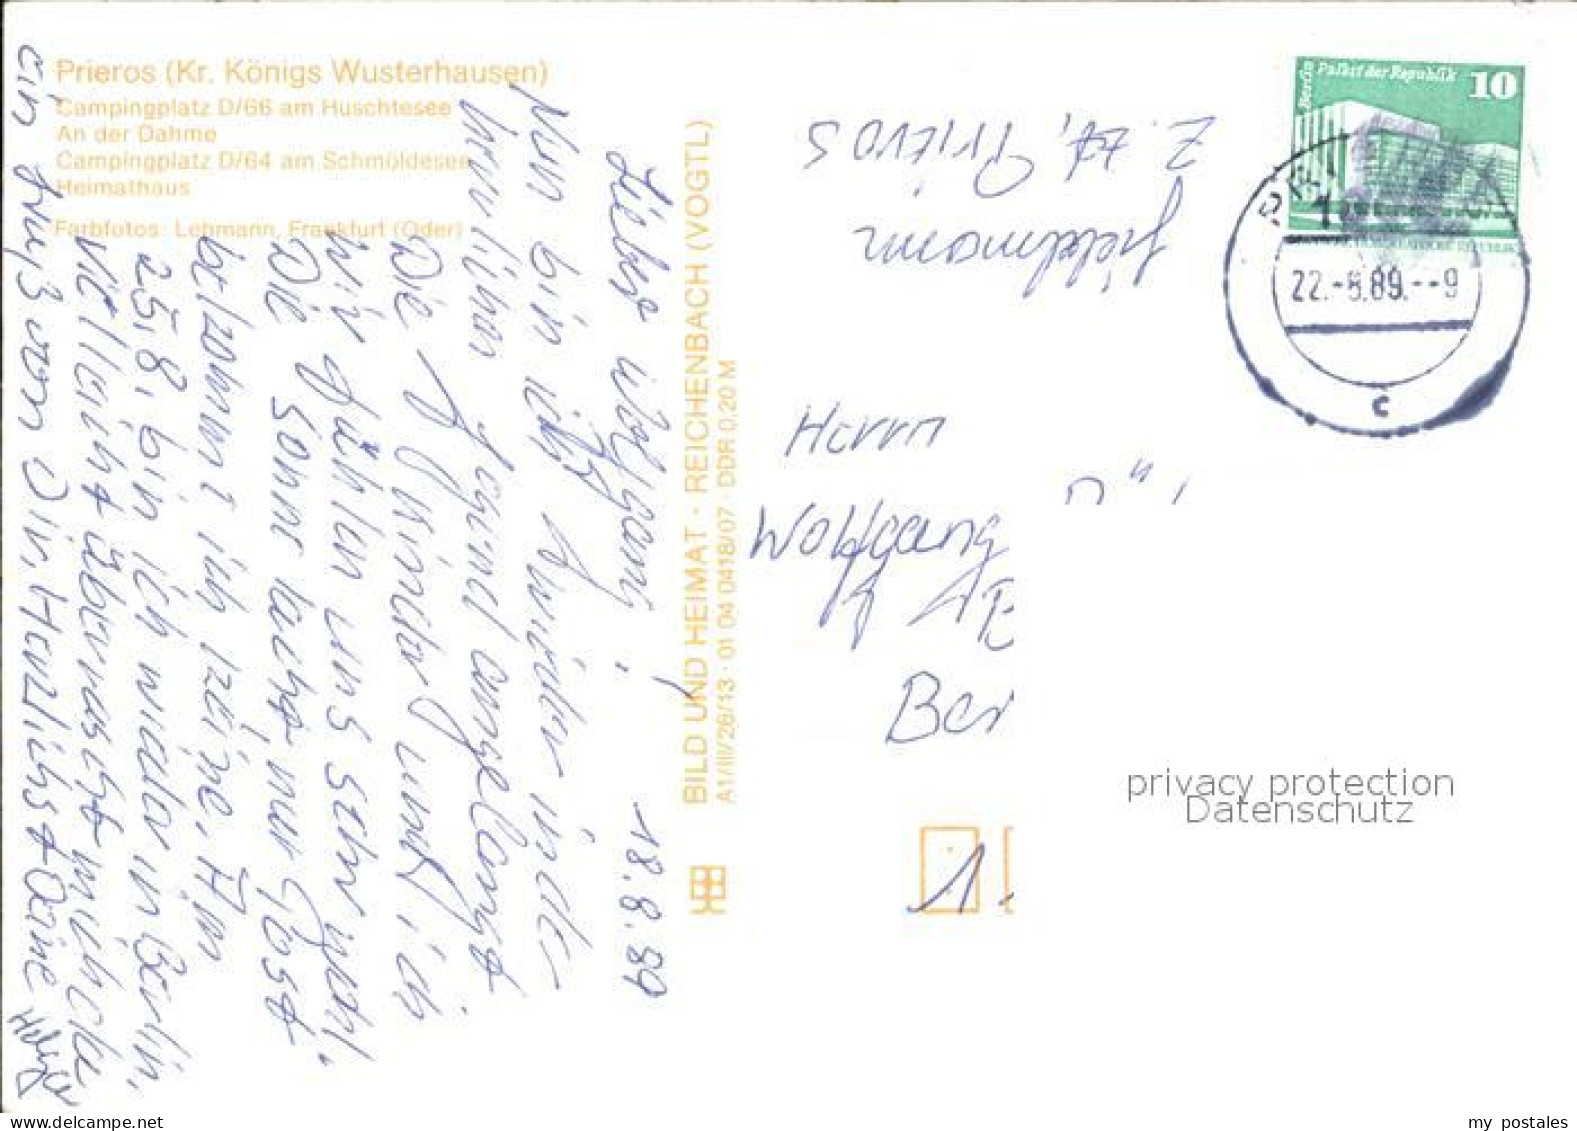 Prieros (Kr. Königs Wusterhausen)
Campingplatz D/66 am Huschtesee
An der Dahme
Campingplatz D/64 am Schmöldesee
Heimathaus
Farbfotos: Lehmann, Frankfurt (Oder)
18.8.89
Lieber Wolfgang!
Nun bin ich wieder in der
herrlichen Gegend angelangt
Die Kinder und ich
wir fühlen uns sehr wohl.
Die Sonne lacht, nur Gost
bekomme ich keine. Am
25.8. bin ich wieder in Berlin,
vielleicht überrascht mich da
ein Gruß von Dir. Herzlichst Deine
BILD UND HEIMAT · REICHENBACH (VOGTL)
A1/III/26/13 · 01 04 0418/07 · DDR 0,20 M
z. Zt. Prieros
Berlin Palast der Republik
10
22.-8.89.--9
c
Herrn
Wolfgang
Ber
1
privacy protection
Datenschutz
my postales